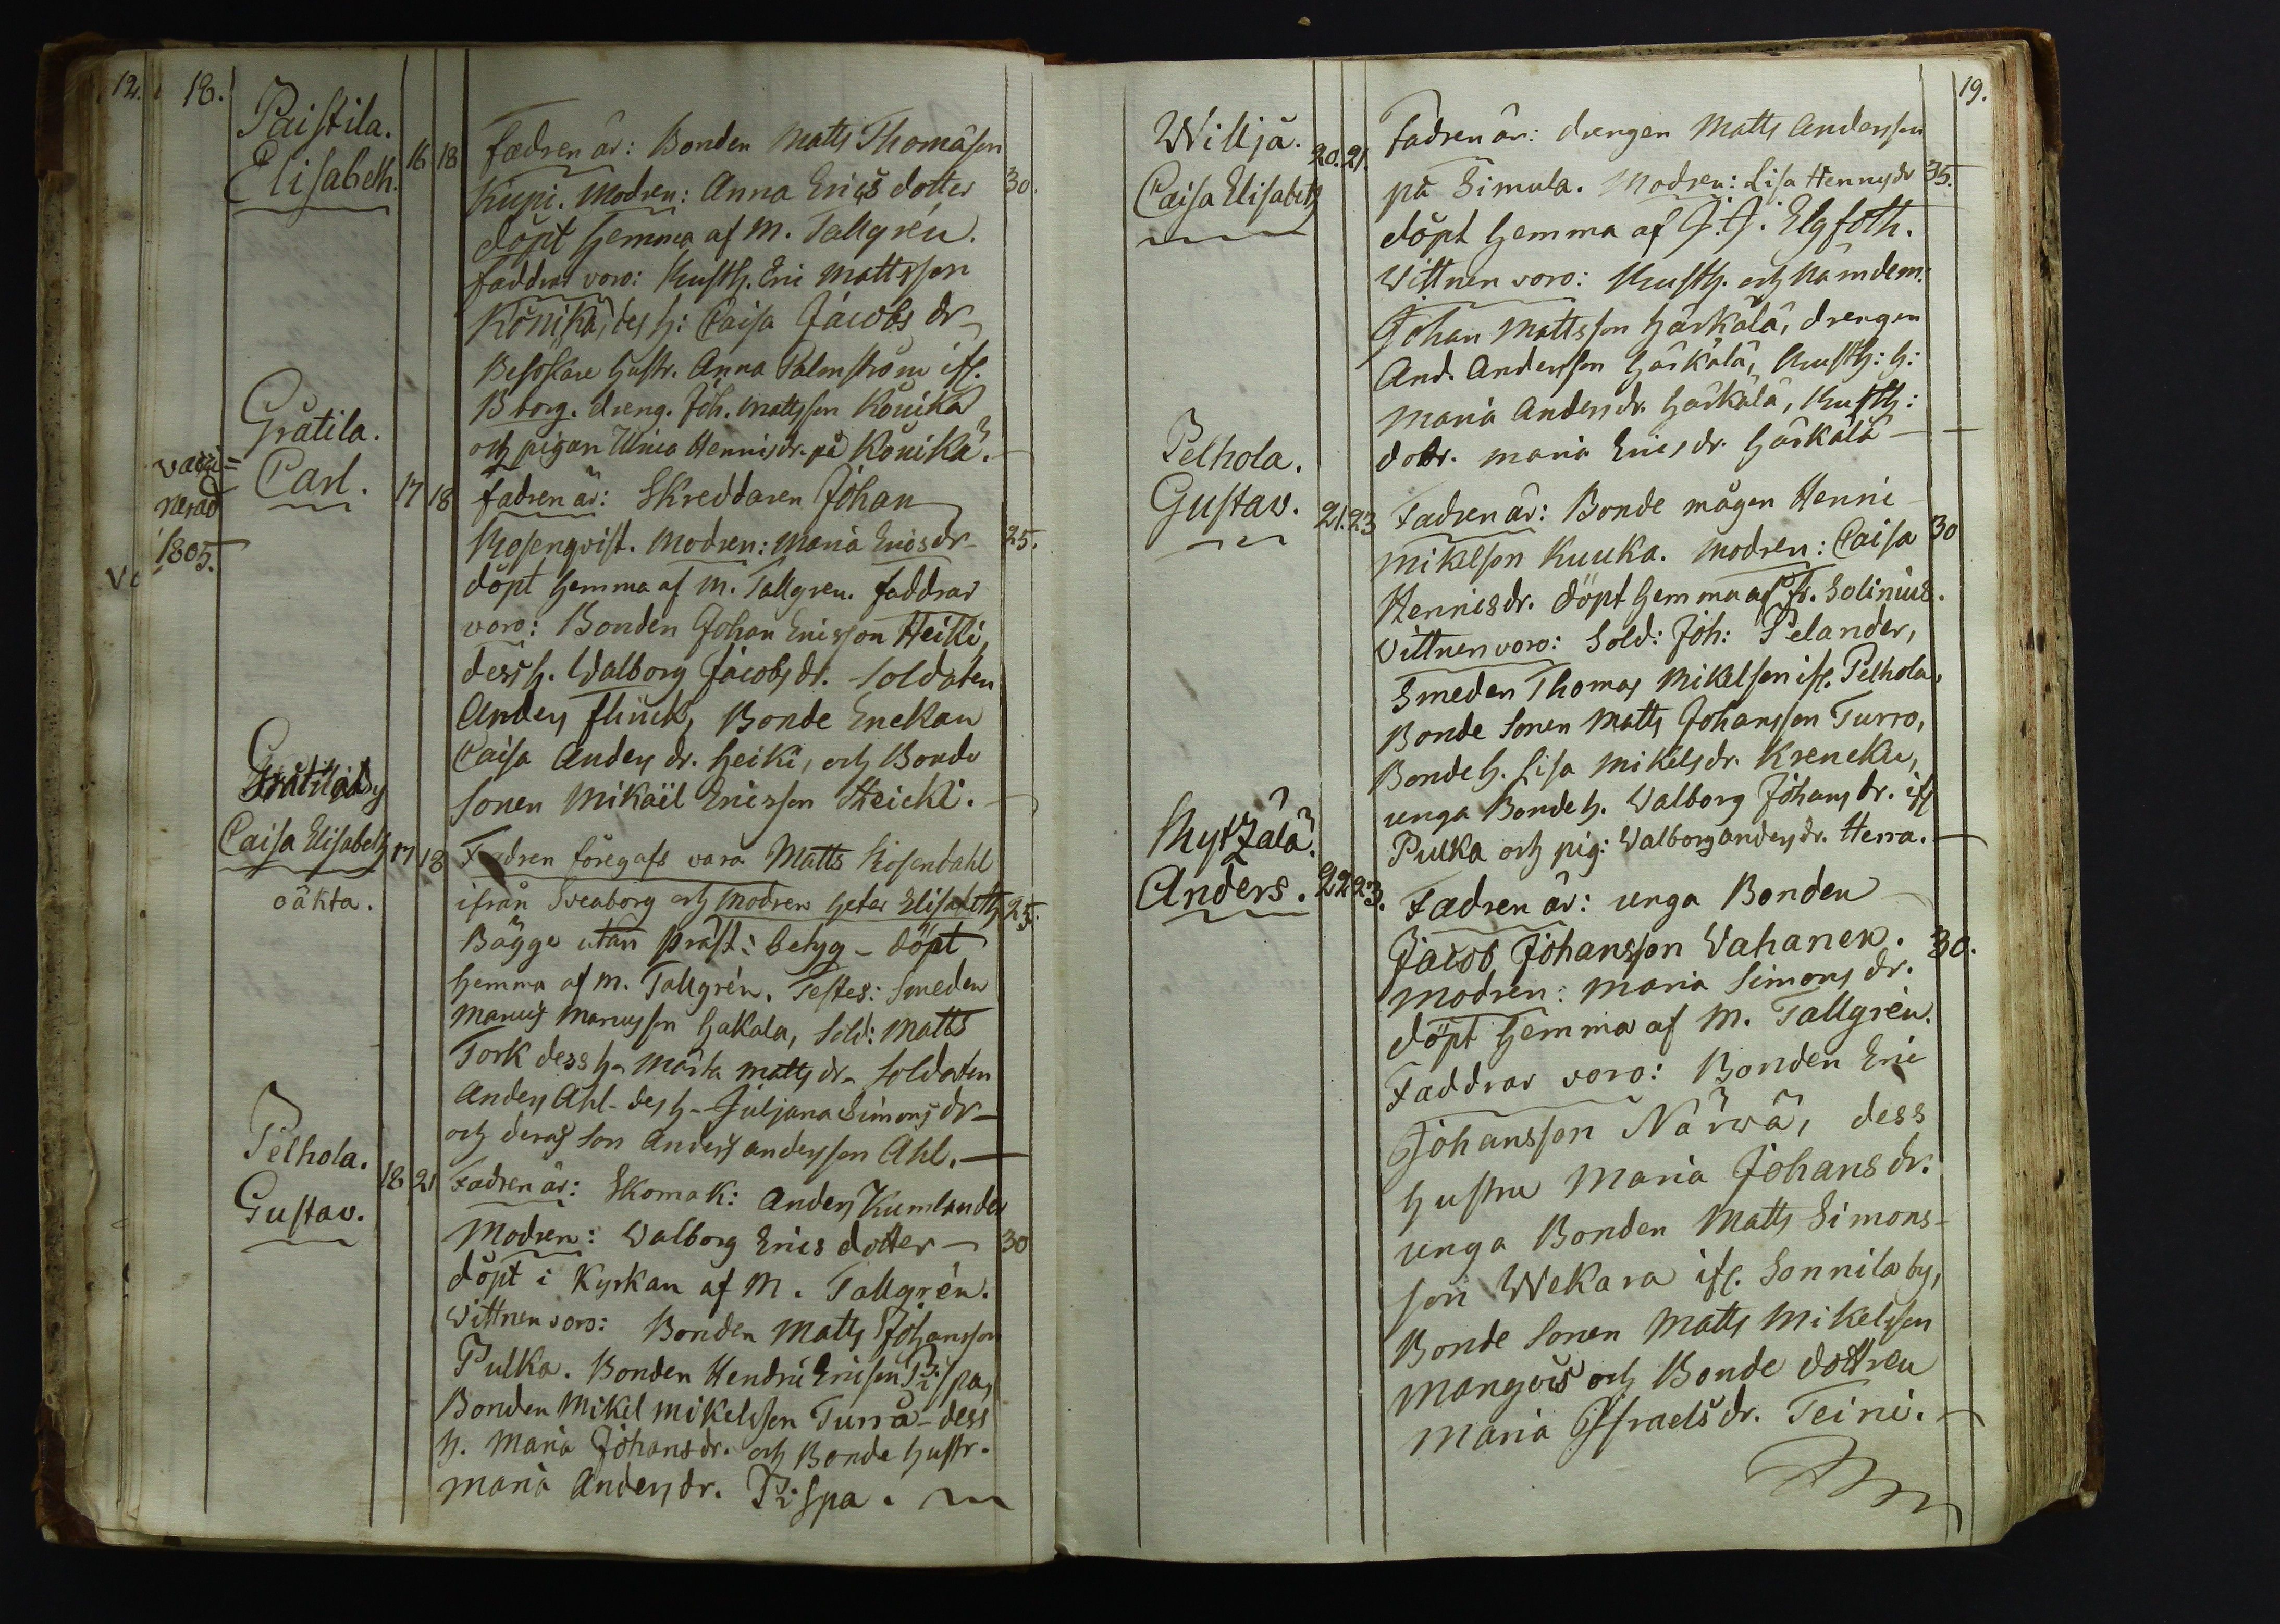 12.
18.
Paistila.
Elisabeth.
16 18
Fadren är: Bonden Matts Thomäson
Kupi. Modren: Anna Erics dotter 30.
döpt hemma af M. Tallgrén.
faddrar voro: Rusth. Eric Mattsson
Könikä, des h: Caisa Jacobs dr
Besökare hustr. Anna Palmström ifr.
Bborg. dreng. Joh. Mattsson Könikä
och pigan Ulrica Hennisdr. på Könikä.
Gråtila.
Carl.
vacci=
nerad
1805.
17 18
fadren är: Skreddaren Johan
Rosenqvist. Modren: Maria Ericsdr 25.
döpt hemma af M. Tallgren. faddrar
voro: Bonden Johan Ericsson Heiki,
dess h. Walborg Jacobs dr. Soldaten
Anders Flinck, Bonde Enekan
Caisa Anders dr. heiki, och Bonde
Sonen Mikaël Ericsson Heicki.
Gråtilaby
Caisa Elisabeth
oäkta.
17 18
Fadren föregafs vara Matts Rosendahl
ifrån Sveaborg och Modren heter Elisabeth 25.
Bägge utan präst: betyg - döpt
hemma af M. Tallgrén. Testes: Smeden
Marcus Marcusson Hakala, Sold: Matts
Tork dess h. Märta Matts dr. Soldaten
Anders Ahl - des h - Juljana Simons dr
och deras Son Anders andersson Ahl.
Pelhola.
Gustav.
18 21
Fadren är: Skomak: Anders Kumlander
Modren: Walborg Erics dotter 30
döpt i Kyrkan af M. Tallgrén.
Wittnen voro: Bonden Matts Johansson
Pulka. Bonden Hendric Ericson Pispa,
Bonden Mikel Mikelsson Turra - dess
h. Maria Johansdr. och Bonde hustr.
Maria Andersdr. Pispa.
19.
Willjä.
Caisa Elisabeth
20. 21.
Fadren är: drengen Matts Andersson
på Simula. Modren: Lisa Hennrsdr 35.
döpt hemma af J. J. Elgfoth.
Wittnen voro: Rusth. och Nämdem:
Johan Mattsson Härkälä, drengen
And. Andersson Härkälä, Rusth: h:
Maria Andersdr. Härkälä, Rusth:
dotr. Maria Erics dr. Härkälä
Pelhola.
Gustav.
21. 23
Fadren är: Bonde mågen Henric
Mikelson Kuuka. Modren: Caisa 30
Hennicsdr. döpt hemma af Fr. Solinius.
Vittnen voro: Sold: Joh: Pelander,
Smeden Thomas Mikelson ifr. Pelhola,
Bonde Sonen Matts Johansson Turro,
Bonde h. Lisa Mikelsdr. Kreneku,
unga Bonde h. Walborg Johans dr. ifr
Pulka och pig: Walborg andersdr. Herra.
Anders.
22 23.
Fadren är: unga Bonden
Jacob Johansson Vahanen. 30.
Modren: Maria Simons dr.
döpt hemma af M. Tallgrén.
Faddrar voro: Bonden Eric
Johansson Närvä, dess
hustru Maria Johans dr.
unga Bonden Matts Simons-
son Wekara ifr. Sonnila by,
Bonde Sonen Matts Mikelsson
Mangois och Bonde dottren
Maria Israels dr. Teini.